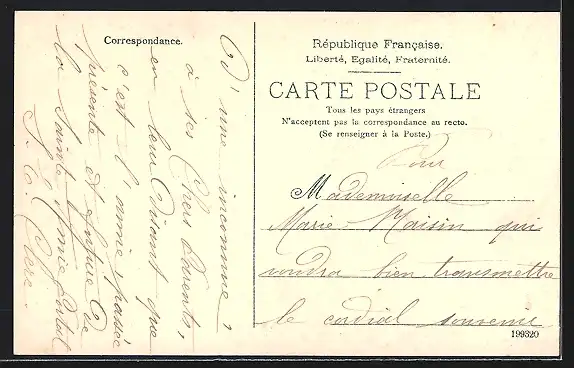 Correspondance.
D'une inconnue,
à ses chers Parents,
en leur disant que
c'est l'amie, passée
présente et future de
la Sainte
République Française.
Liberté, Egalité, Fraternité.
CARTE POSTALE
Tous les pays étrangers
N'acceptent pas la correspondance au recto.
(Se renseigner à la Poste.)
Pour
Mademoiselle
Marie Raisin qui
voudra bien transmettre
le cordial souvenir
199320